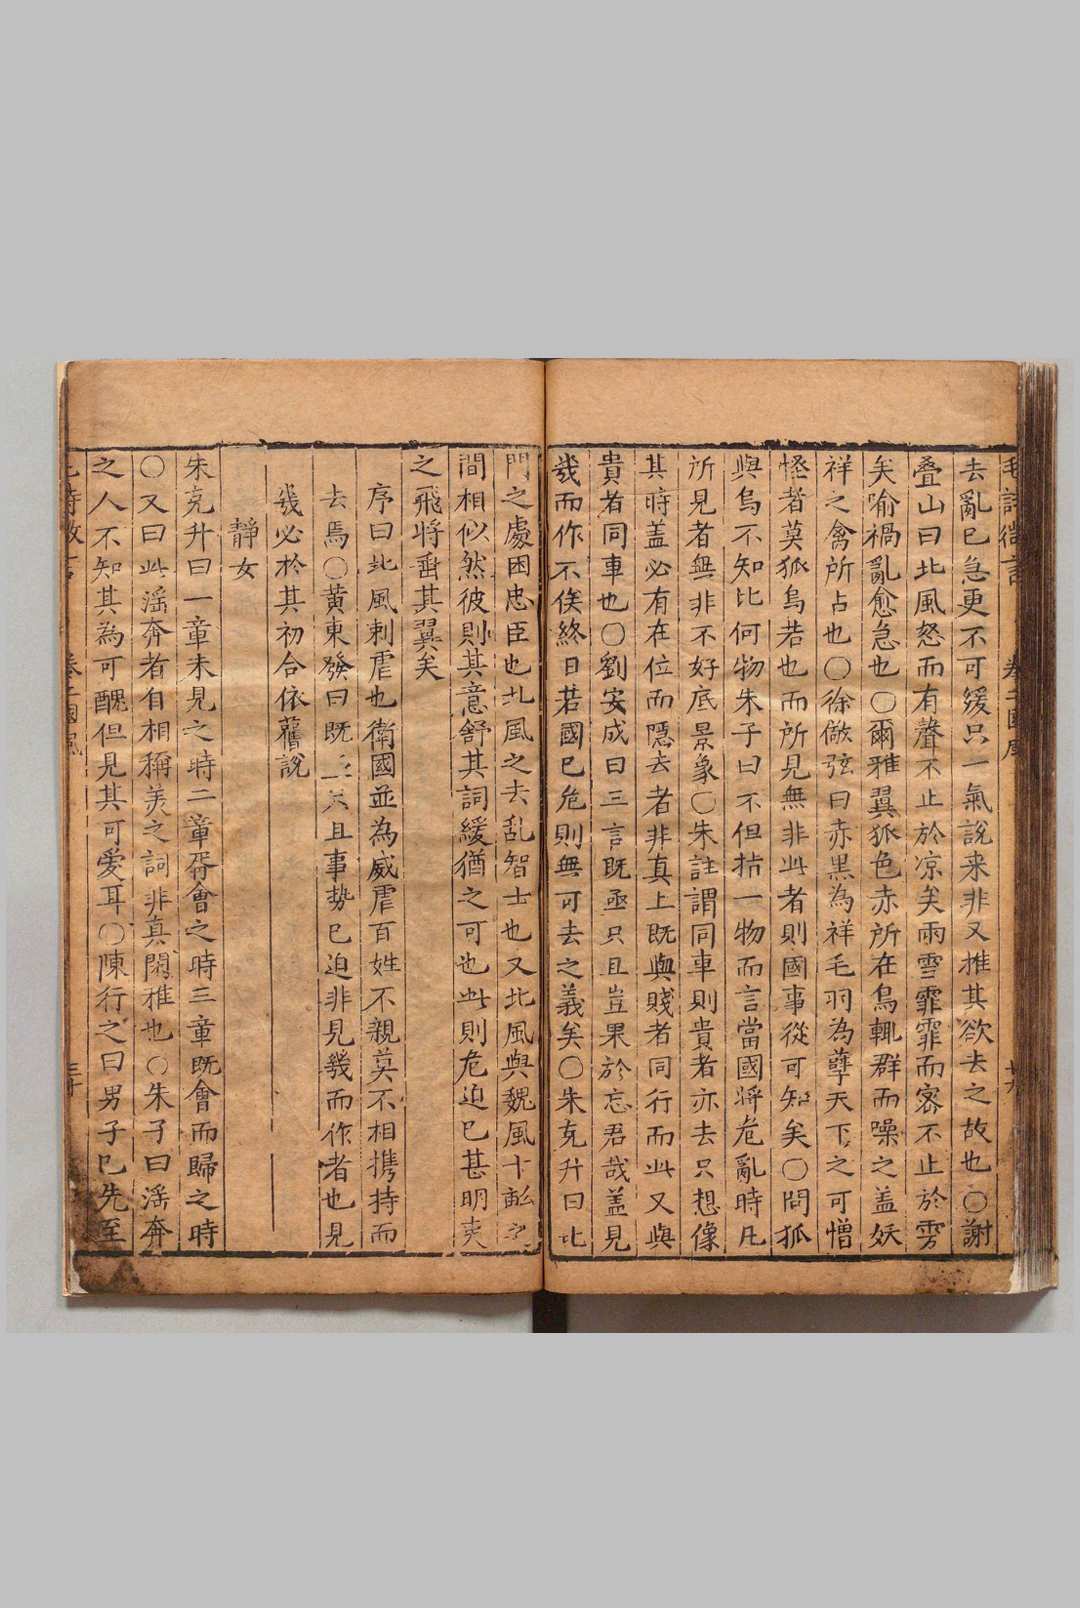 毛詩微言 卷二國風 廿九
去亂已急更不可緩只一氣說来非又推其欲去之故也〇謝
疊山曰北風怒而有聲不止於凉矣雨雪霏霏而密不止於雱
矣喻禍亂愈急也〇爾雅翼狐色赤所在烏輒群而噪之盖妖
祥之禽所占也〇徐儆弦曰赤黒為祥毛羽為孽天下之可憎
怪者莫狐烏若也而所見無非此者則國事從可知矣〇問狐
與烏不知比何物朱子曰不但指一物而言當國將危亂時凡
所見者無非不好底景象〇朱註謂同車則貴者亦去只想像
其時盖必有在位而隱去者非真上既與賤者同行而此又與
貴者同車也〇劉安成曰三言既亟只且豈果於忘君哉盖見
幾而作不俟終日若國已危則無可去之義矣〇朱克升曰北
門之處困忠臣也北風之去乱智士也又北風與魏風十畝之
間相似然彼則其意舒其詞緩猶之可也此則危迫已甚明夷
之飛將垂其翼矣
序曰北風刺虐也衛國並為威虐百姓不親莫不相携持而
去焉〇黄東發曰既只且事勢已迫非見幾而作者也見
幾必於其初合依舊說
靜女
朱克升曰一章未見之時二章胥會之時三章既會而歸之時
〇又曰此滛奔者自相稱美之詞非真閑雅也〇朱子曰滛奔
之人不知其為可醜但見其可愛耳〇陳行之曰男子已先至
卷二國風 三十